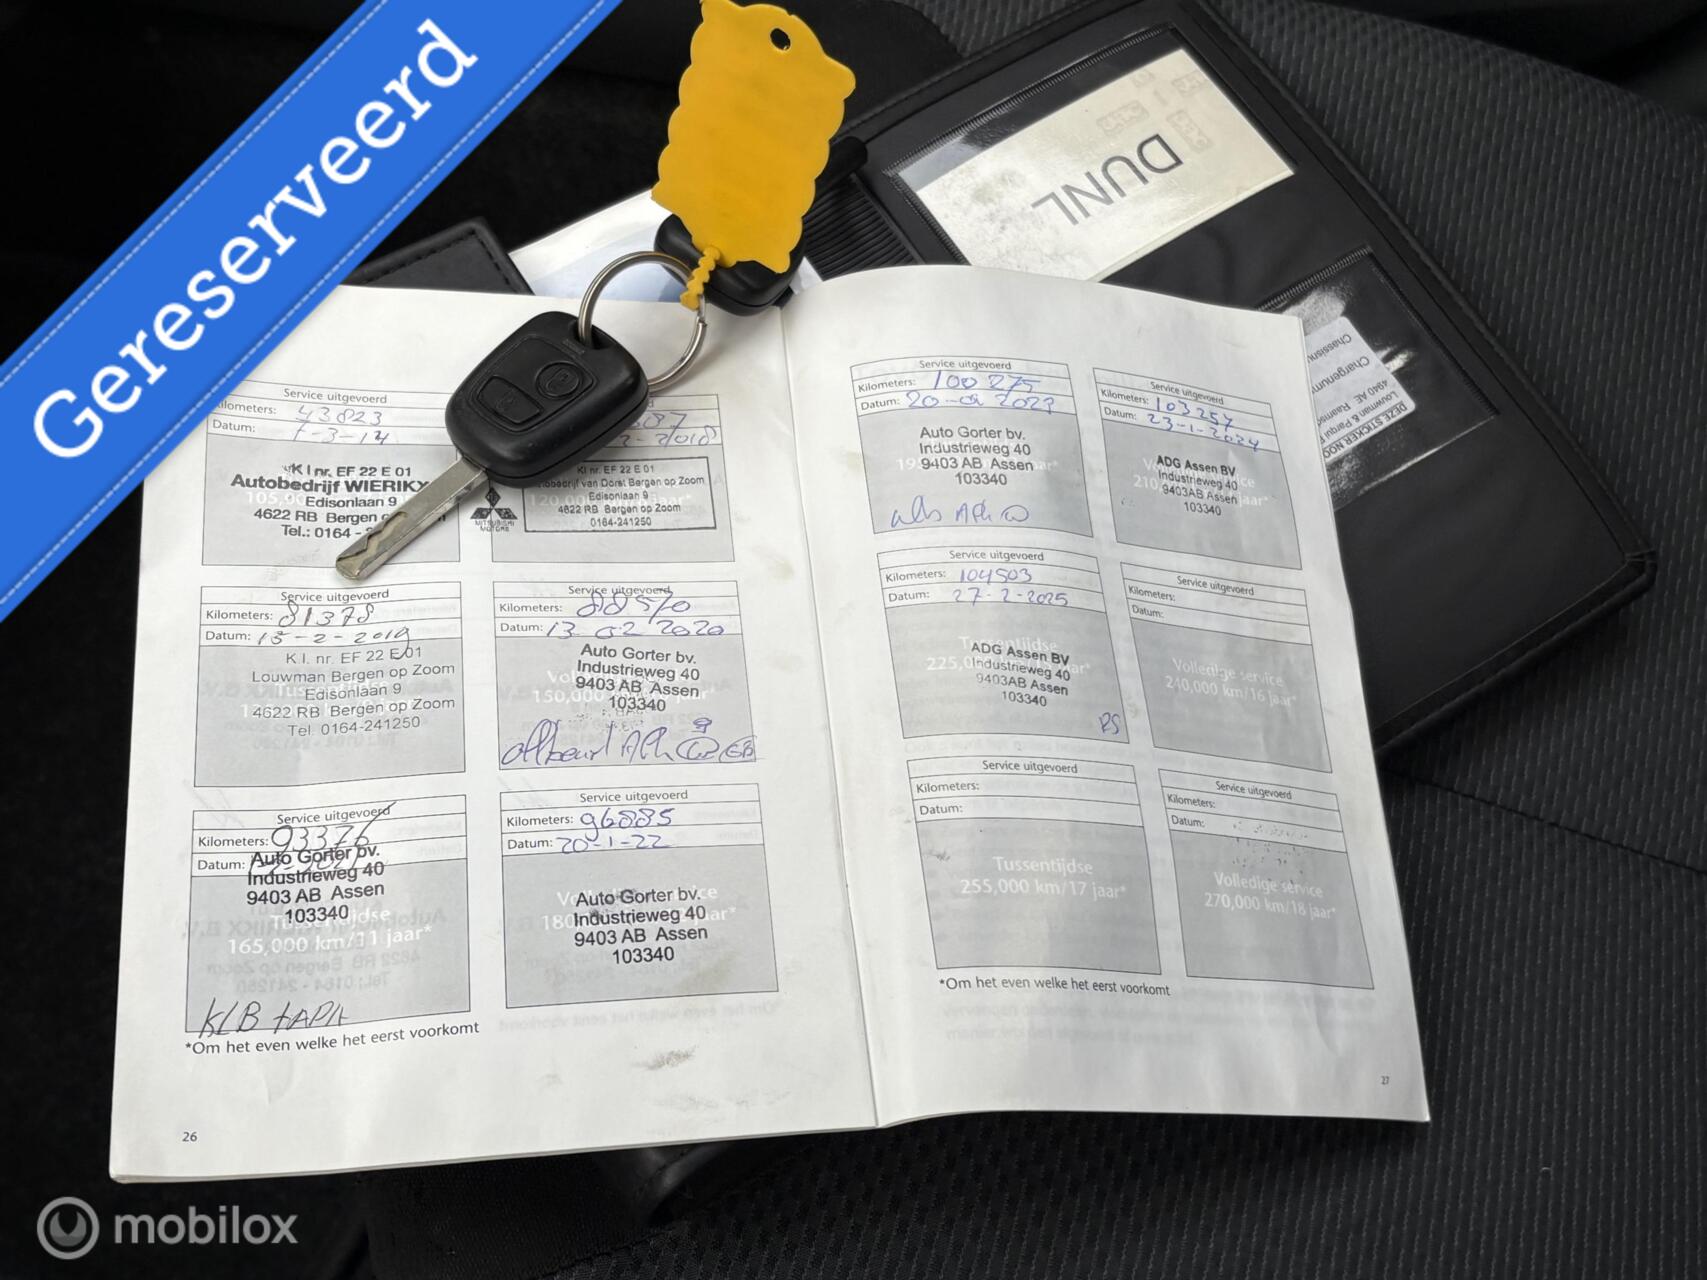 Gereserveerd
DUNL
DEZE STICKER NOO
Louwman & Parqui
4940 AE Raams
Chargenum
Chassisnu
Service uitgevoerd
Kilometers: 43823
Datum: 1-3-14
K I nr. EF 22 E 01
Autobedrijf WIERIKX
Edisonlaan 9
4622 RB Bergen
Tel.: 0164 -
2-2018
KI nr. EF 22 E 01
Autobedrijf van Dorst Bergen op Zoom
Edisonlaan 9
4622 RB Bergen op Zoom
0164-241250
120,000
MITSUBISHI
MOTORS
Service uitgevoerd
Kilometers: 81378
Datum: 15-2-2019
K.I. nr. EF 22 E 01
Louwman Bergen op Zoom
Edisonlaan 9
4622 RB Bergen op Zoom
Tel. 0164-241250
Service uitgevoerd
Kilometers: 88570
Datum: 13 02 2020
Auto Gorter bv.
Industrieweg 40
9403 AB Assen
103340
150,000
Service uitgevoerd
Kilometers: 93376
Datum:
Auto Gorter bv.
Industrieweg 40
9403 AB Assen
103340
Tussentijdse
165,000 km/11 jaar*
KLB + APK
Service uitgevoerd
Kilometers: 96885
Datum: 20-1-22
Auto Gorter bv.
Industrieweg 40
9403 AB Assen
103340
*Om het even welke het eerst voorkomt
26
Service uitgevoerd
Kilometers: 100275
Datum:
Auto Gorter bv.
Industrieweg 40
9403 AB Assen
103340
Service uitgevoerd
Kilometers: 103257
Datum: 23-1-2024
ADG Assen BV
Industrieweg 40
9403AB Assen
103340
Service uitgevoerd
Kilometers: 104503
Datum: 27-2-2025
Tussentijdse
ADG Assen BV
Industrieweg 40
9403AB Assen
103340
RS
Service uitgevoerd
Kilometers:
Datum:
Volledige service
240,000 km/16 jaar*
Service uitgevoerd
Kilometers:
Datum:
Tussentijdse
255,000 km/17 jaar*
Service uitgevoerd
Kilometers:
Datum:
Volledige service
270,000 km/18 jaar*
*Om het even welke het eerst voorkomt
27
mobilox